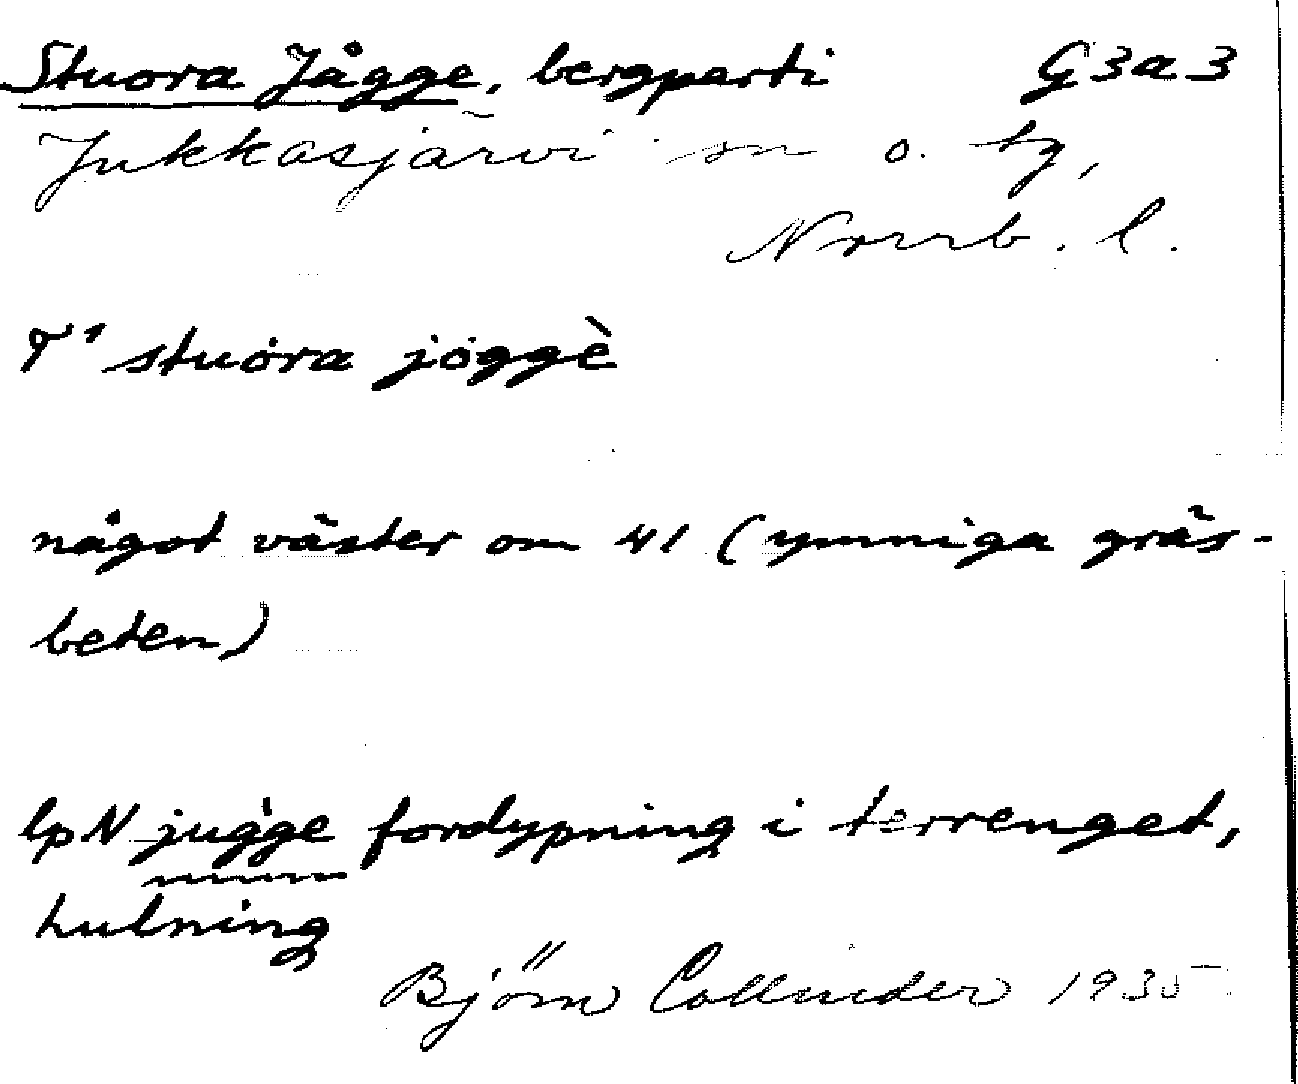 Stuora Jågge, bergparti G3a3
Jukkasjärvi sn o. tg,
Norrb. l.
T¹ stuȯra jȯggè
något väster om 41 (ymniga gräs-
beten)
lpN jug'ge fordypning i terrenget,
hulning
Björn Collinder 1935